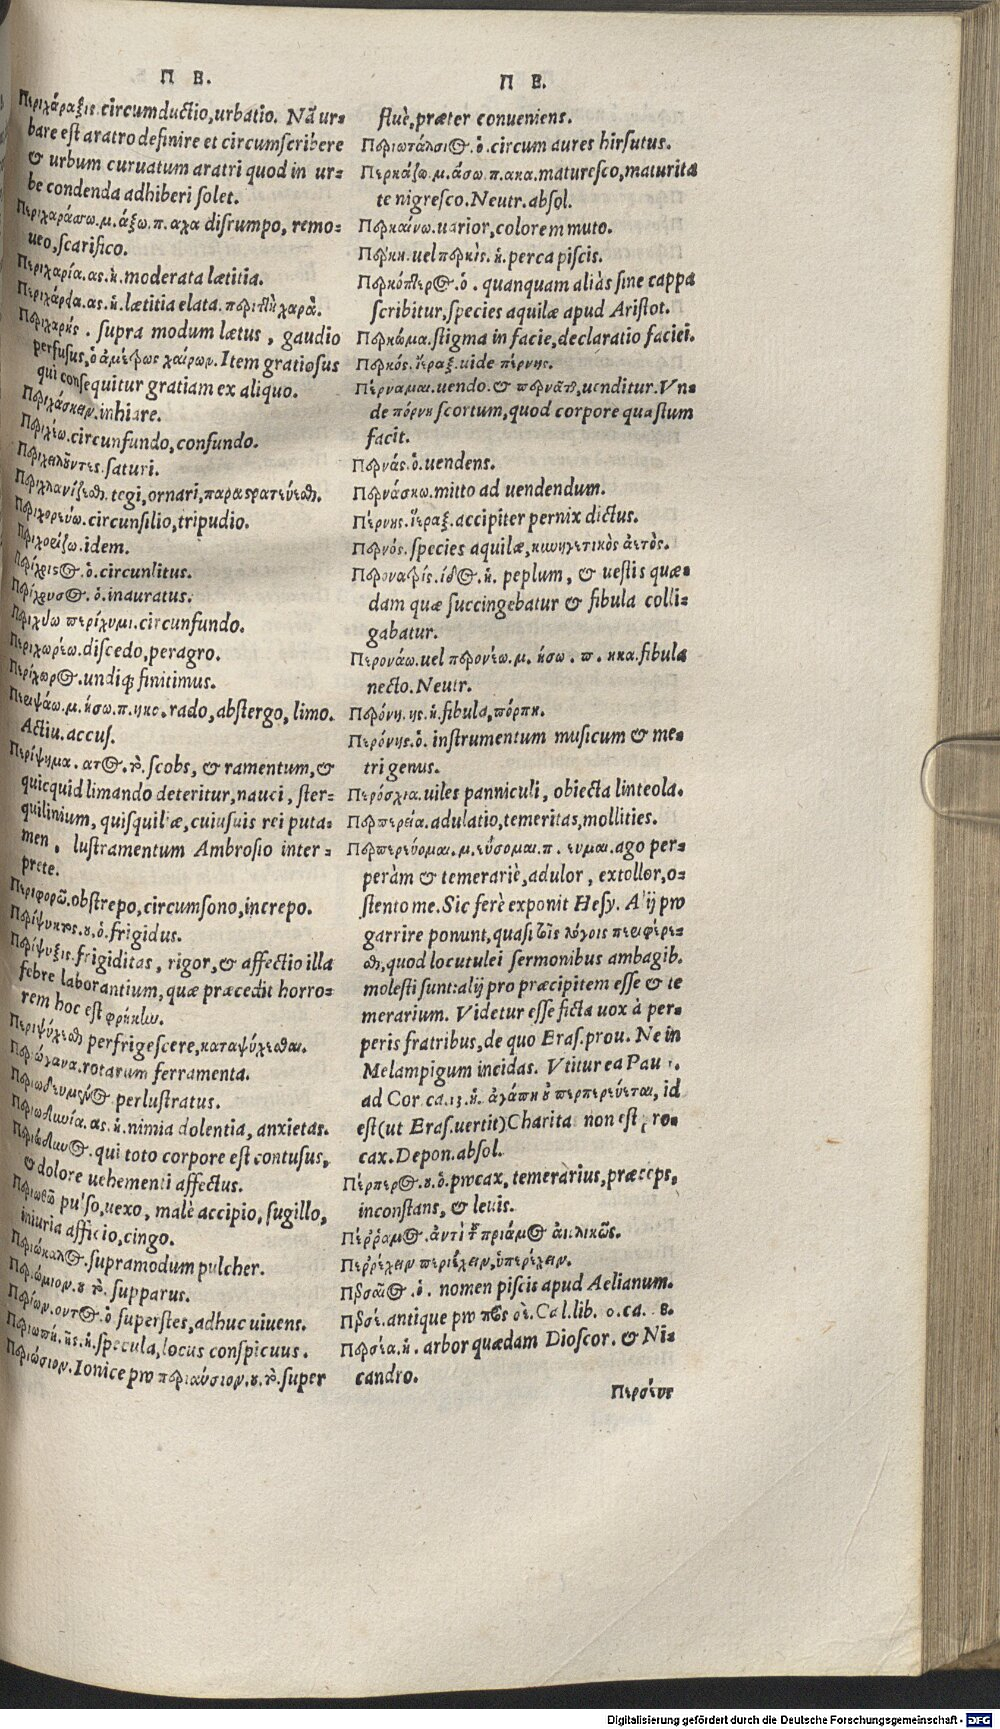 Π Ε.
Περιχάραξις. circumductio, urbatio. Nā ur-
bare est aratro definire et circumscribere
& urbum curuatum aratri quod in ur-
be condenda adhiberi solet.
Περιχαράσσω. μ. άξω. π. αχα disrumpo, remo-
ueo, scarifico.
Περιχαρία. ας. ἡ. moderata lætitia.
Περιχάρεια. ας. ἡ. lætitia elata. περιττὴ χαρά.
Περιχαρής. supra modum lætus, gaudio
perfusus, ὁ ἀμέτρως χαίρων. Item gratiosus
qui consequitur gratiam ex aliquo.
Περιχάσκειν. inhiare.
Περιχέω. circunfundo, confundo.
Περιχειλοῦντες. saturi.
Περιχλανίζεσθ. tegi, ornari, παραστρατεύεσθ.
Περιχορεύω. circunsilio, tripudio.
Περιχορίζω. idem.
Περίχριστος. ὁ. circunlitus.
Περίχρυσος. ὁ. inauratus.
Περιχύω περίχυμι. circunfundo.
Περιχωρέω. discedo, peragro.
Περίχωρος. undiq; finitimus.
Περιψάω. μ. ήσω. π. ηκα. rado, abstergo, limo.
Actiu. accus.
Περίψημα. ατος. τὸ. scobs, & ramentum, &
quicquid limando deteritur, nauci, ster-
quilinium, quisquiliæ, cuiusuis rei puta-
men, lustramentum Ambrosio inter-
prete.
Περιψοφῶ. obstrepo, circumsono, increpo.
Περίψυκτος. ου. ὁ. frigidus.
Περίψυξις. frigiditas, rigor, & affectio illa
febre laborantium, quæ præcedit horro-
rem hoc est φρίκην.
Περιψύχεσθ perfrigescere, καταψύχεσθαι.
Περιώγανα. rotarum ferramenta.
Περιωδευμένος perlustratus.
Περιωδυνία. ας. ἡ. nimia dolentia, anxietas.
Περιώδυνος. qui toto corpore est contusus,
& dolore uehementi affectus.
Περιωθῶ pulso, uexo, malè accipio, sugillo,
iniuria afficio, cingo.
Περιώκαλος. supramodum pulcher.
Περιώμιον. ου τὸ. supparus.
Περιών. οντος. ὁ superstes, adhuc uiuens.
Περιωπή. ῆς. ἡ. specula, locus conspicuus.
Περιώσιον. Ionice pro περιαύσιον. ου. τὸ. super
Π Ε.
fluè, præter conueniens.
Περιωτάλσιος. ὁ. circum aures hirsutus.
Περκάζω. μ. άσω. π. ακα. maturesco, maturita
te nigresco. Neutr. absol.
Περκαίνω. uarior, colorem muto.
Πέρκη. uel περκὶς. ἡ. perca piscis.
Περκόπτερος. ὁ. quanquam aliàs sine cappa
scribitur, species aquilæ apud Aristot.
Περκώμα. stigma in facie, declaratio faciei.
Περκός. ἱέραξ. uide πέρνης.
Πέρναμαι. uendo. & περνᾶτ, uenditur. Vn-
de πόρνη scortum, quod corpore quæstum
facit.
Περνάς. ὁ. uendens.
Περνάσκω. mitto ad uendendum.
Πέρνης. ἱέραξ. accipiter pernix dictus.
Περνός. species aquilæ, κυνηγετικὸς ἀετὸς.
Περοναρίς. ίδος. ἡ. peplum, & uestis quæ-
dam quæ succingebatur & fibula colli-
gabatur.
Περονάω. uel περονέω. μ. ήσω. π. ηκα. fibula
necto. Neutr.
Περόνη. ης. ἡ. fibula, πόρπη.
Περόνης. ὁ. instrumentum musicum & me-
tri genus.
Περόσχια. uiles panniculi, obiecta linteola.
Περπερεία. adulatio, temeritas, mollities.
Περπερεύομαι. μ. εύσομαι. π. ευμαι. ago per-
peràm & temerariè, adulor, extollor, o-
stento me. Sic ferè exponit Hesy. Alij pro
garrire ponunt, quasi τοῖς λόγοις περιφέρε-
σθ, quod locutulei sermonibus ambagib.
molesti sunt: alij pro præcipitem esse & te
merarium. Videtur esse ficta uox à per-
peris fratribus, de quo Eras. prou. Ne in
Melampigum incidas. Vtitur ea Pau
ad Cor. ca. 13. ἡ. ἀγάπη οὐ περπερεύεται, id
est (ut Eras. uertit) Charitas non est pro-
cax. Depon. absol.
Πέρπερος. ου. ὁ. procax, temerarius, præceps,
inconstans, & leuis.
Πέῤῥαμος. ἀντὶ τοῦ πριάμος αἰολικῶς.
Περρέχειν περιέχειν, ὑπερέχειν.
Περσαῖος. ὁ. nomen piscis apud Aelianum.
Περσέ. antique pro πρὸς σέ. Cal. lib. ca. 8.
Περσέα. ἡ. arbor quædam Dioscor. & Ni-
candro.
Περσεὺς